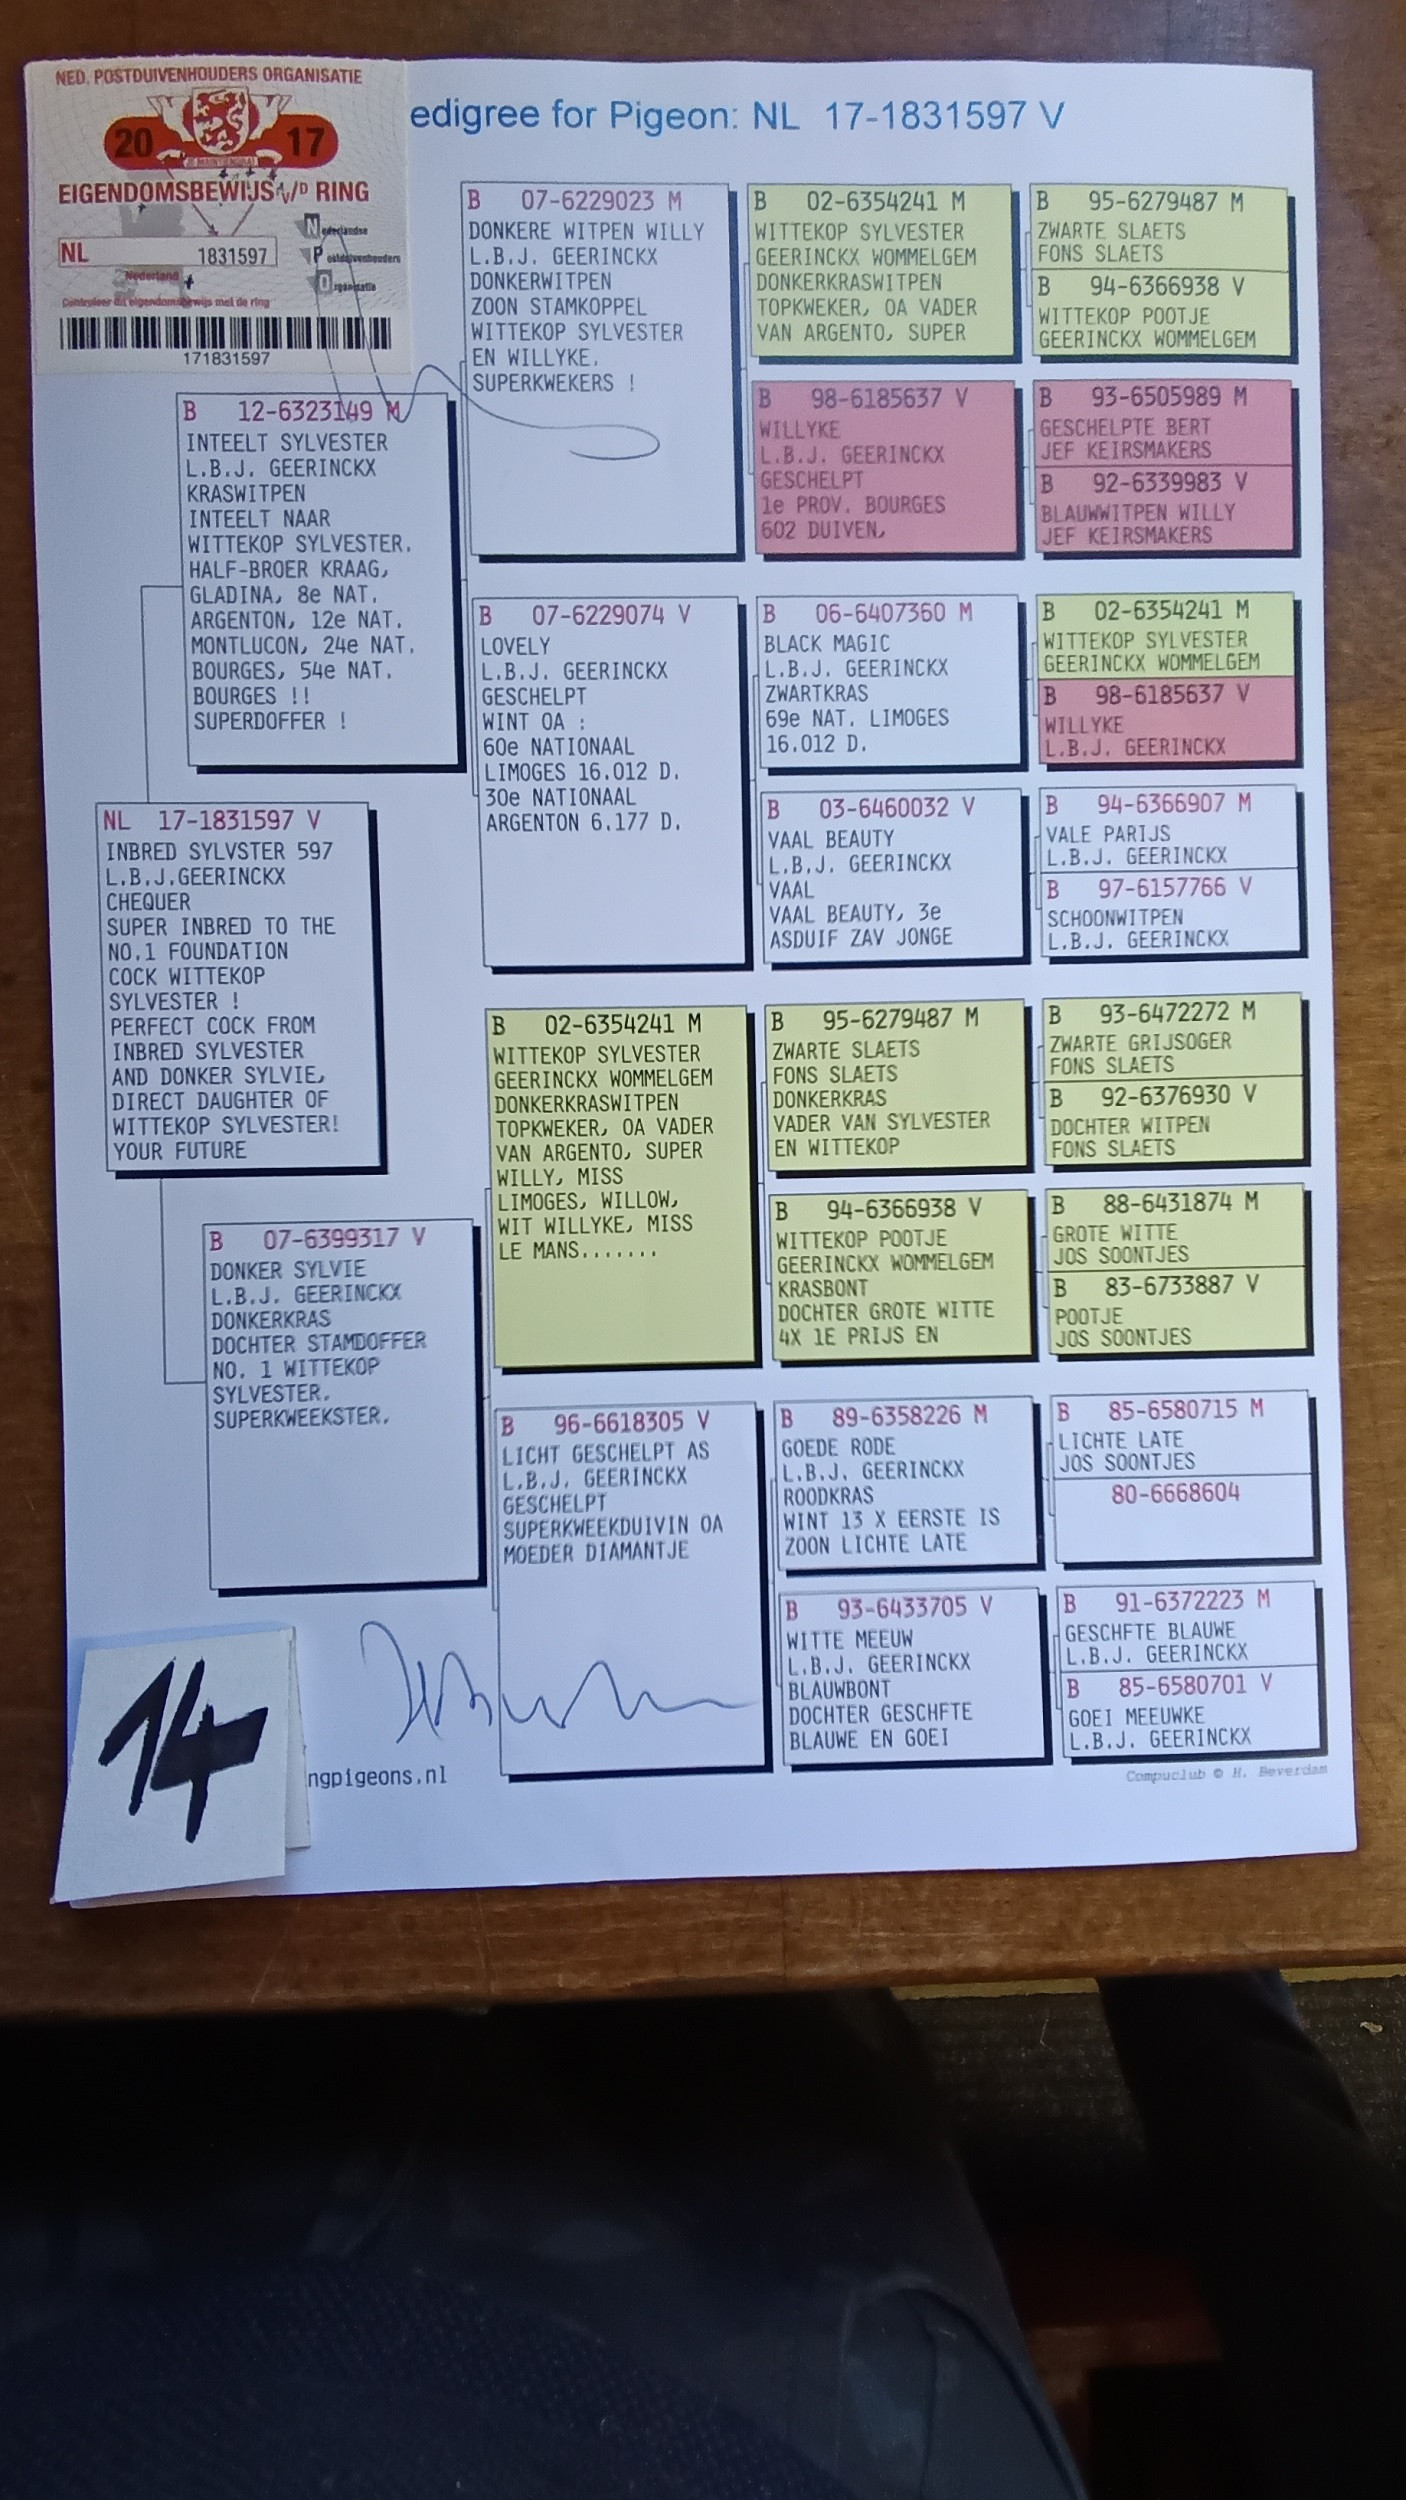 NED. POSTDUIVENHOUDERS ORGANISATIE
20 17
JE MAINTIENDRAI
EIGENDOMSBEWIJS V/D RING
NL 1831597
Nederland
Nederlandse
Postduivenhouders
Organisatie
Controleer dit eigendomsbewijs met de ring
171831597
edigree for Pigeon: NL 17-1831597 V
B 12-6323149 M
INTEELT SYLVESTER
L.B.J. GEERINCKX
KRASWITPEN
INTEELT NAAR
WITTEKOP SYLVESTER.
HALF-BROER KRAAG,
GLADINA, 8e NAT.
ARGENTON, 12e NAT.
MONTLUCON, 24e NAT.
BOURGES, 54e NAT.
BOURGES !!
SUPERDOFFER !
NL 17-1831597 V
INBRED SYLVSTER 597
L.B.J.GEERINCKX
CHEQUER
SUPER INBRED TO THE
NO.1 FOUNDATION
COCK WITTEKOP
SYLVESTER !
PERFECT COCK FROM
INBRED SYLVESTER
AND DONKER SYLVIE,
DIRECT DAUGHTER OF
WITTEKOP SYLVESTER!
YOUR FUTURE
B 07-6399317 V
DONKER SYLVIE
L.B.J. GEERINCKX
DONKERKRAS
DOCHTER STAMDOFFER
NO. 1 WITTEKOP
SYLVESTER.
SUPERKWEEKSTER.
B 07-6229023 M
DONKERE WITPEN WILLY
L.B.J. GEERINCKX
DONKERWITPEN
ZOON STAMKOPPEL
WITTEKOP SYLVESTER
EN WILLYKE.
SUPERKWEKERS !
B 07-6229074 V
LOVELY
L.B.J. GEERINCKX
GESCHELPT
WINT OA :
60e NATIONAAL
LIMOGES 16.012 D.
30e NATIONAAL
ARGENTON 6.177 D.
B 02-6354241 M
WITTEKOP SYLVESTER
GEERINCKX WOMMELGEM
DONKERKRASWITPEN
TOPKWEKER, OA VADER
VAN ARGENTO, SUPER
WILLY, MISS
LIMOGES, WILLOW,
WIT WILLYKE, MISS
LE MANS.......
B 96-6618305 V
LICHT GESCHELPT AS
L.B.J. GEERINCKX
GESCHELPT
SUPERKWEEKDUIVIN OA
MOEDER DIAMANTJE
B 02-6354241 M
WITTEKOP SYLVESTER
GEERINCKX WOMMELGEM
DONKERKRASWITPEN
TOPKWEKER, OA VADER
VAN ARGENTO, SUPER
B 98-6185637 V
WILLYKE
L.B.J. GEERINCKX
GESCHELPT
1e PROV. BOURGES
602 DUIVEN,
B 06-6407360 M
BLACK MAGIC
L.B.J. GEERINCKX
ZWARTKRAS
69e NAT. LIMOGES
16.012 D.
B 03-6460032 V
VAAL BEAUTY
L.B.J. GEERINCKX
VAAL
VAAL BEAUTY, 3e
ASDUIF ZAV JONGE
B 95-6279487 M
ZWARTE SLAETS
FONS SLAETS
DONKERKRAS
VADER VAN SYLVESTER
EN WITTEKOP
B 94-6366938 V
WITTEKOP POOTJE
GEERINCKX WOMMELGEM
KRASBONT
DOCHTER GROTE WITTE
4X 1E PRIJS EN
B 89-6358226 M
GOEDE RODE
L.B.J. GEERINCKX
ROODKRAS
WINT 13 X EERSTE IS
ZOON LICHTE LATE
B 93-6433705 V
WITTE MEEUW
L.B.J. GEERINCKX
BLAUWBONT
DOCHTER GESCHFTE
BLAUWE EN GOEI
B 95-6279487 M
ZWARTE SLAETS
FONS SLAETS
B 94-6366938 V
WITTEKOP POOTJE
GEERINCKX WOMMELGEM
B 93-6505989 M
GESCHELPTE BERT
JEF KEIRSMAKERS
B 92-6339983 V
BLAUWWITPEN WILLY
JEF KEIRSMAKERS
B 02-6354241 M
WITTEKOP SYLVESTER
GEERINCKX WOMMELGEM
B 98-6185637 V
WILLYKE
L.B.J. GEERINCKX
B 94-6366907 M
VALE PARIJS
L.B.J. GEERINCKX
B 97-6157766 V
SCHOONWITPEN
L.B.J. GEERINCKX
B 93-6472272 M
ZWARTE GRIJSOGER
FONS SLAETS
B 92-6376930 V
DOCHTER WITPEN
FONS SLAETS
B 88-6431874 M
GROTE WITTE
JOS SOONTJES
B 83-6733887 V
POOTJE
JOS SOONTJES
B 85-6580715 M
LICHTE LATE
JOS SOONTJES
80-6668604
B 91-6372223 M
GESCHFTE BLAUWE
L.B.J. GEERINCKX
B 85-6580701 V
GOEI MEEUWKE
L.B.J. GEERINCKX
14
ngpigeons.nl
Compuclub © H. Beverdam